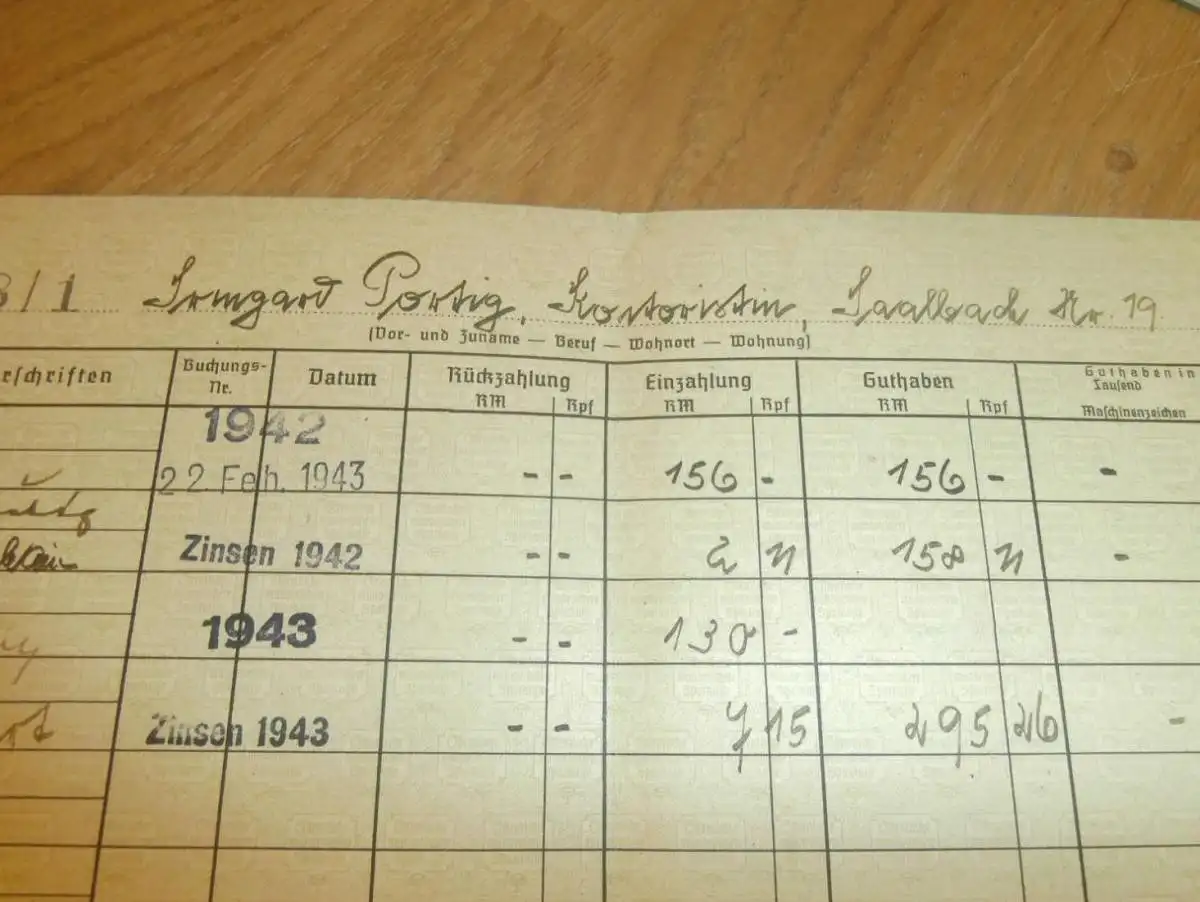 3/1 Irmgard Portig, Kontoristin, Saalbach Nr. 19
(Vor- und Zuname — Beruf — Wohnort — Wohnung)
rschriften Buchungs-Nr. Datum Rückzahlung RM Rpf Einzahlung RM Rpf Guthaben RM Rpf Guthaben in Tausend Maschinenzeichen
1942
22. Feb. 1943 - - 156 - 156 - -
Zinsen 1942 - - 2 11 158 11 -
1943 - - 130 -
Zinsen 1943 - - 7 15 295 26 -